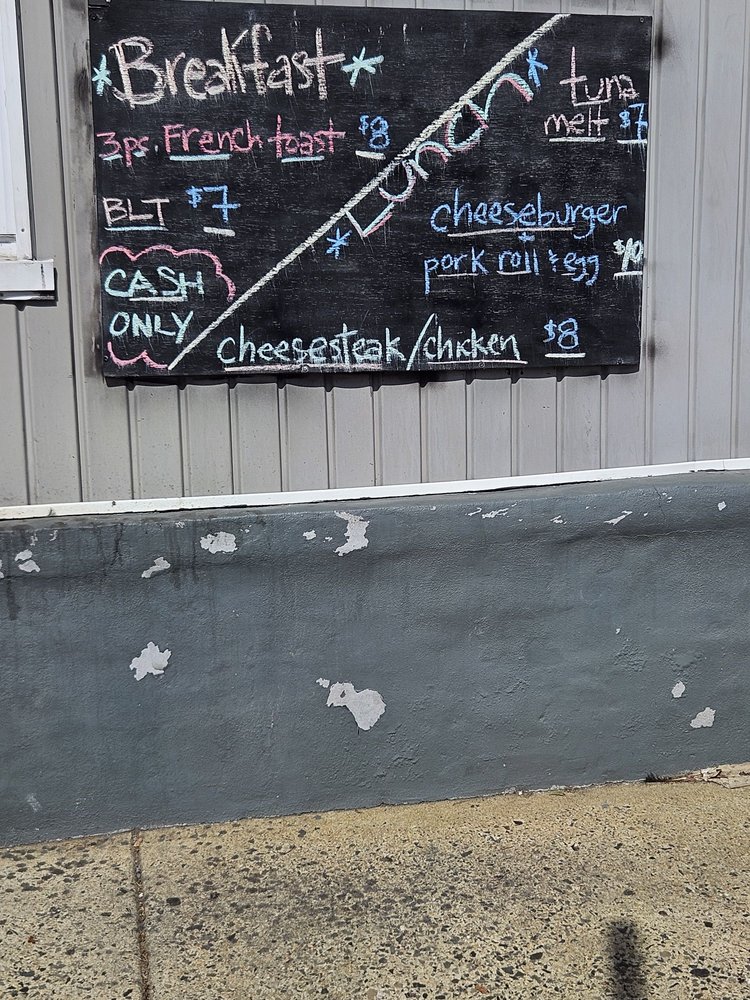 *Breakfast*
3ps. French toast $8
BLT $7
CASH
ONLY
*Lunch*
tuna
melt $7
cheeseburger
pork roll + egg $10
cheesesteak/chicken $8